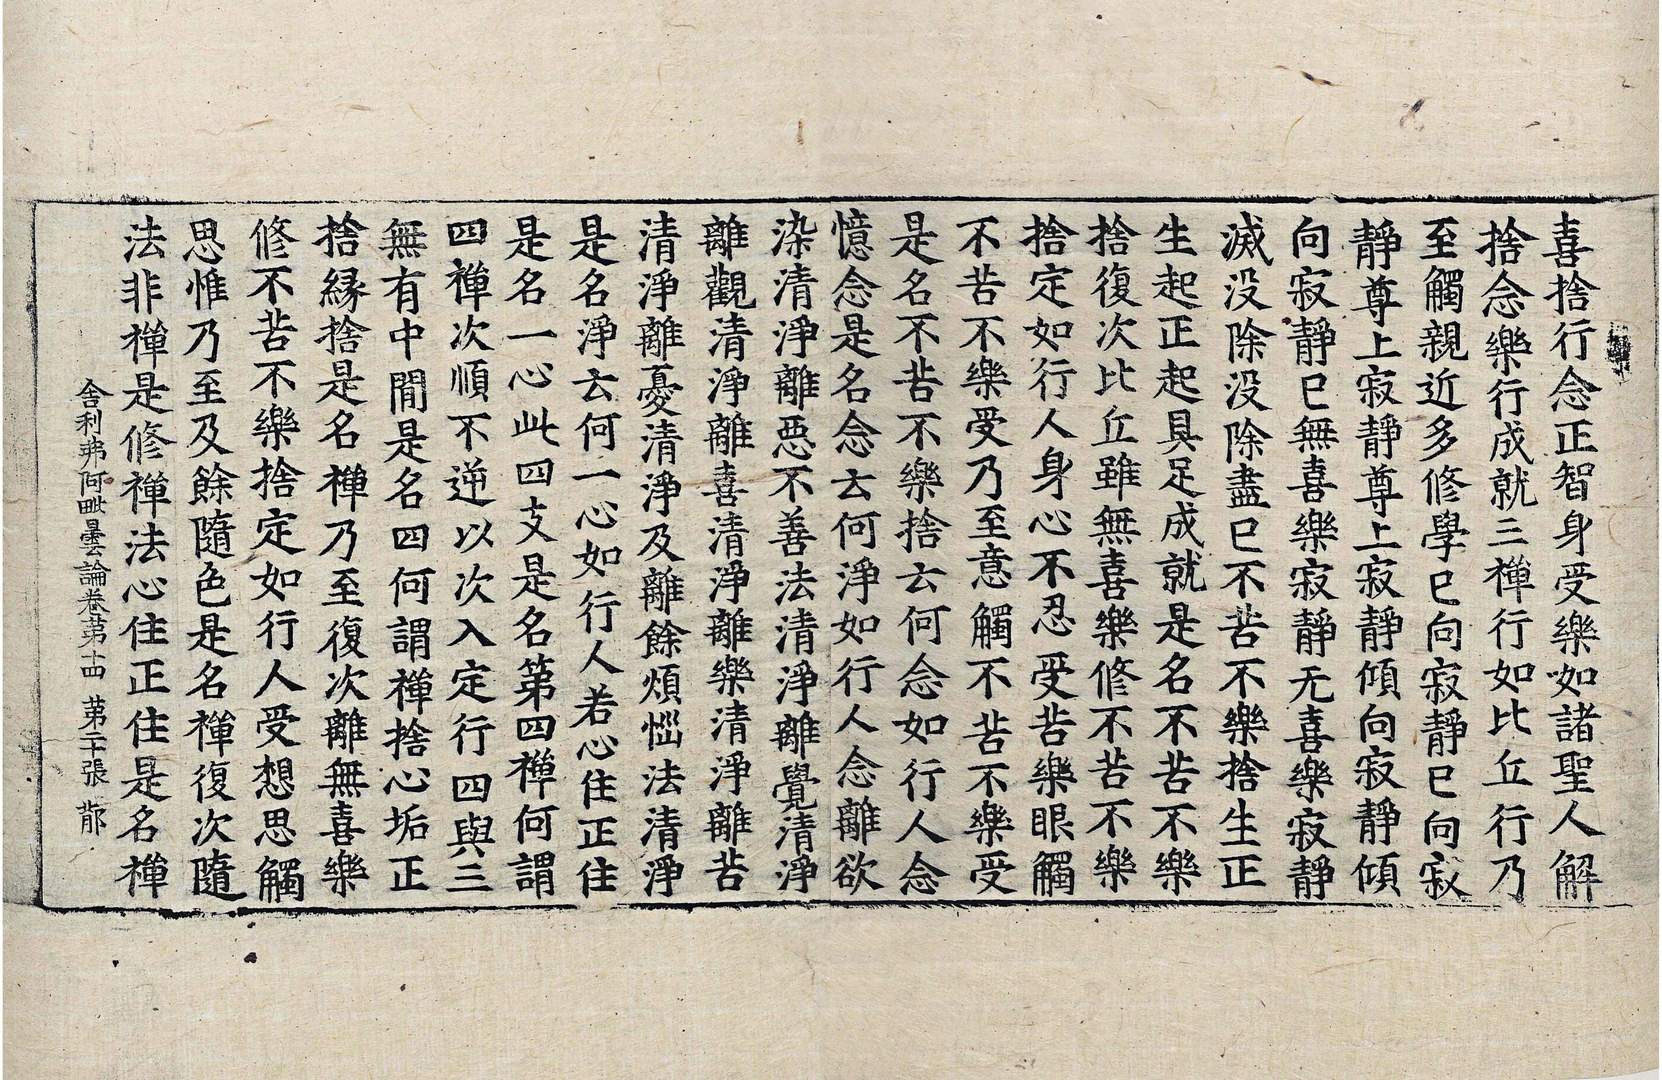 喜捨行念正智身受樂如諸聖人解
捨念樂行成就三禪行如比丘行乃
至觸親近多修學已向寂靜已向寂
靜尊上寂靜尊上寂靜傾向寂靜傾
向寂靜已無喜樂寂靜无喜樂寂靜
滅没除没除盡已不苦不樂捨生正
生起正起具足成就是名不苦不樂
捨復次比丘雖無喜樂修不苦不樂
捨定如行人身心不忍受苦樂眼觸
不苦不樂受乃至意觸不苦不樂受
是名不苦不樂捨云何念如行人念
憶念是名念云何淨如行人念離欲
染清淨離惡不善法清淨離覺清淨
離觀清淨離喜清淨離樂清淨離苦
清淨離憂清淨及離餘煩惱法清淨
是名淨云何一心如行人若心住正住
是名一心此四支是名第四禪何謂
四禪次順不逆以次入定行四與三
無有中間是名四何謂禪捨心垢正
捨緣捨是名禪乃至復次離無喜樂
修不苦不樂捨定如行人受想思觸
思惟乃至及餘隨色是名禪復次隨
法非禪是修禪法心住正住是名禪
舍利弗阿毗曇論卷第十四 第二十張 郍